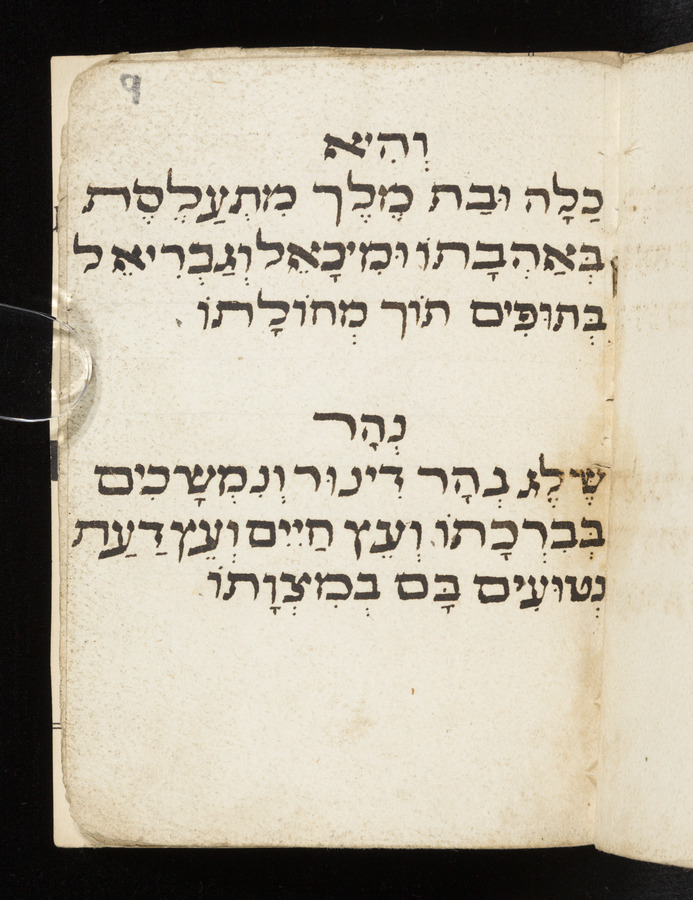 וְהִיא
כַּלָּה וּבַת מֶלֶךְ מִתְעַלֶּסֶת
בְּאַהְבָתוֹ וּמִיכָאֵל וְגַבְרִיאֵל
בְּתוּפִּים תּוֹךְ מְחוֹלָתוֹ
נְהַר
שֶׁלֶג נְהַר דִּינוּר וְנִמְשָׁכִים
בְּבִרְכָתוֹ וְעֵץ חַיִּים וְעֵץ דַּעַת
נְטוּעִים בָּם בְּמִצְוָתוֹ